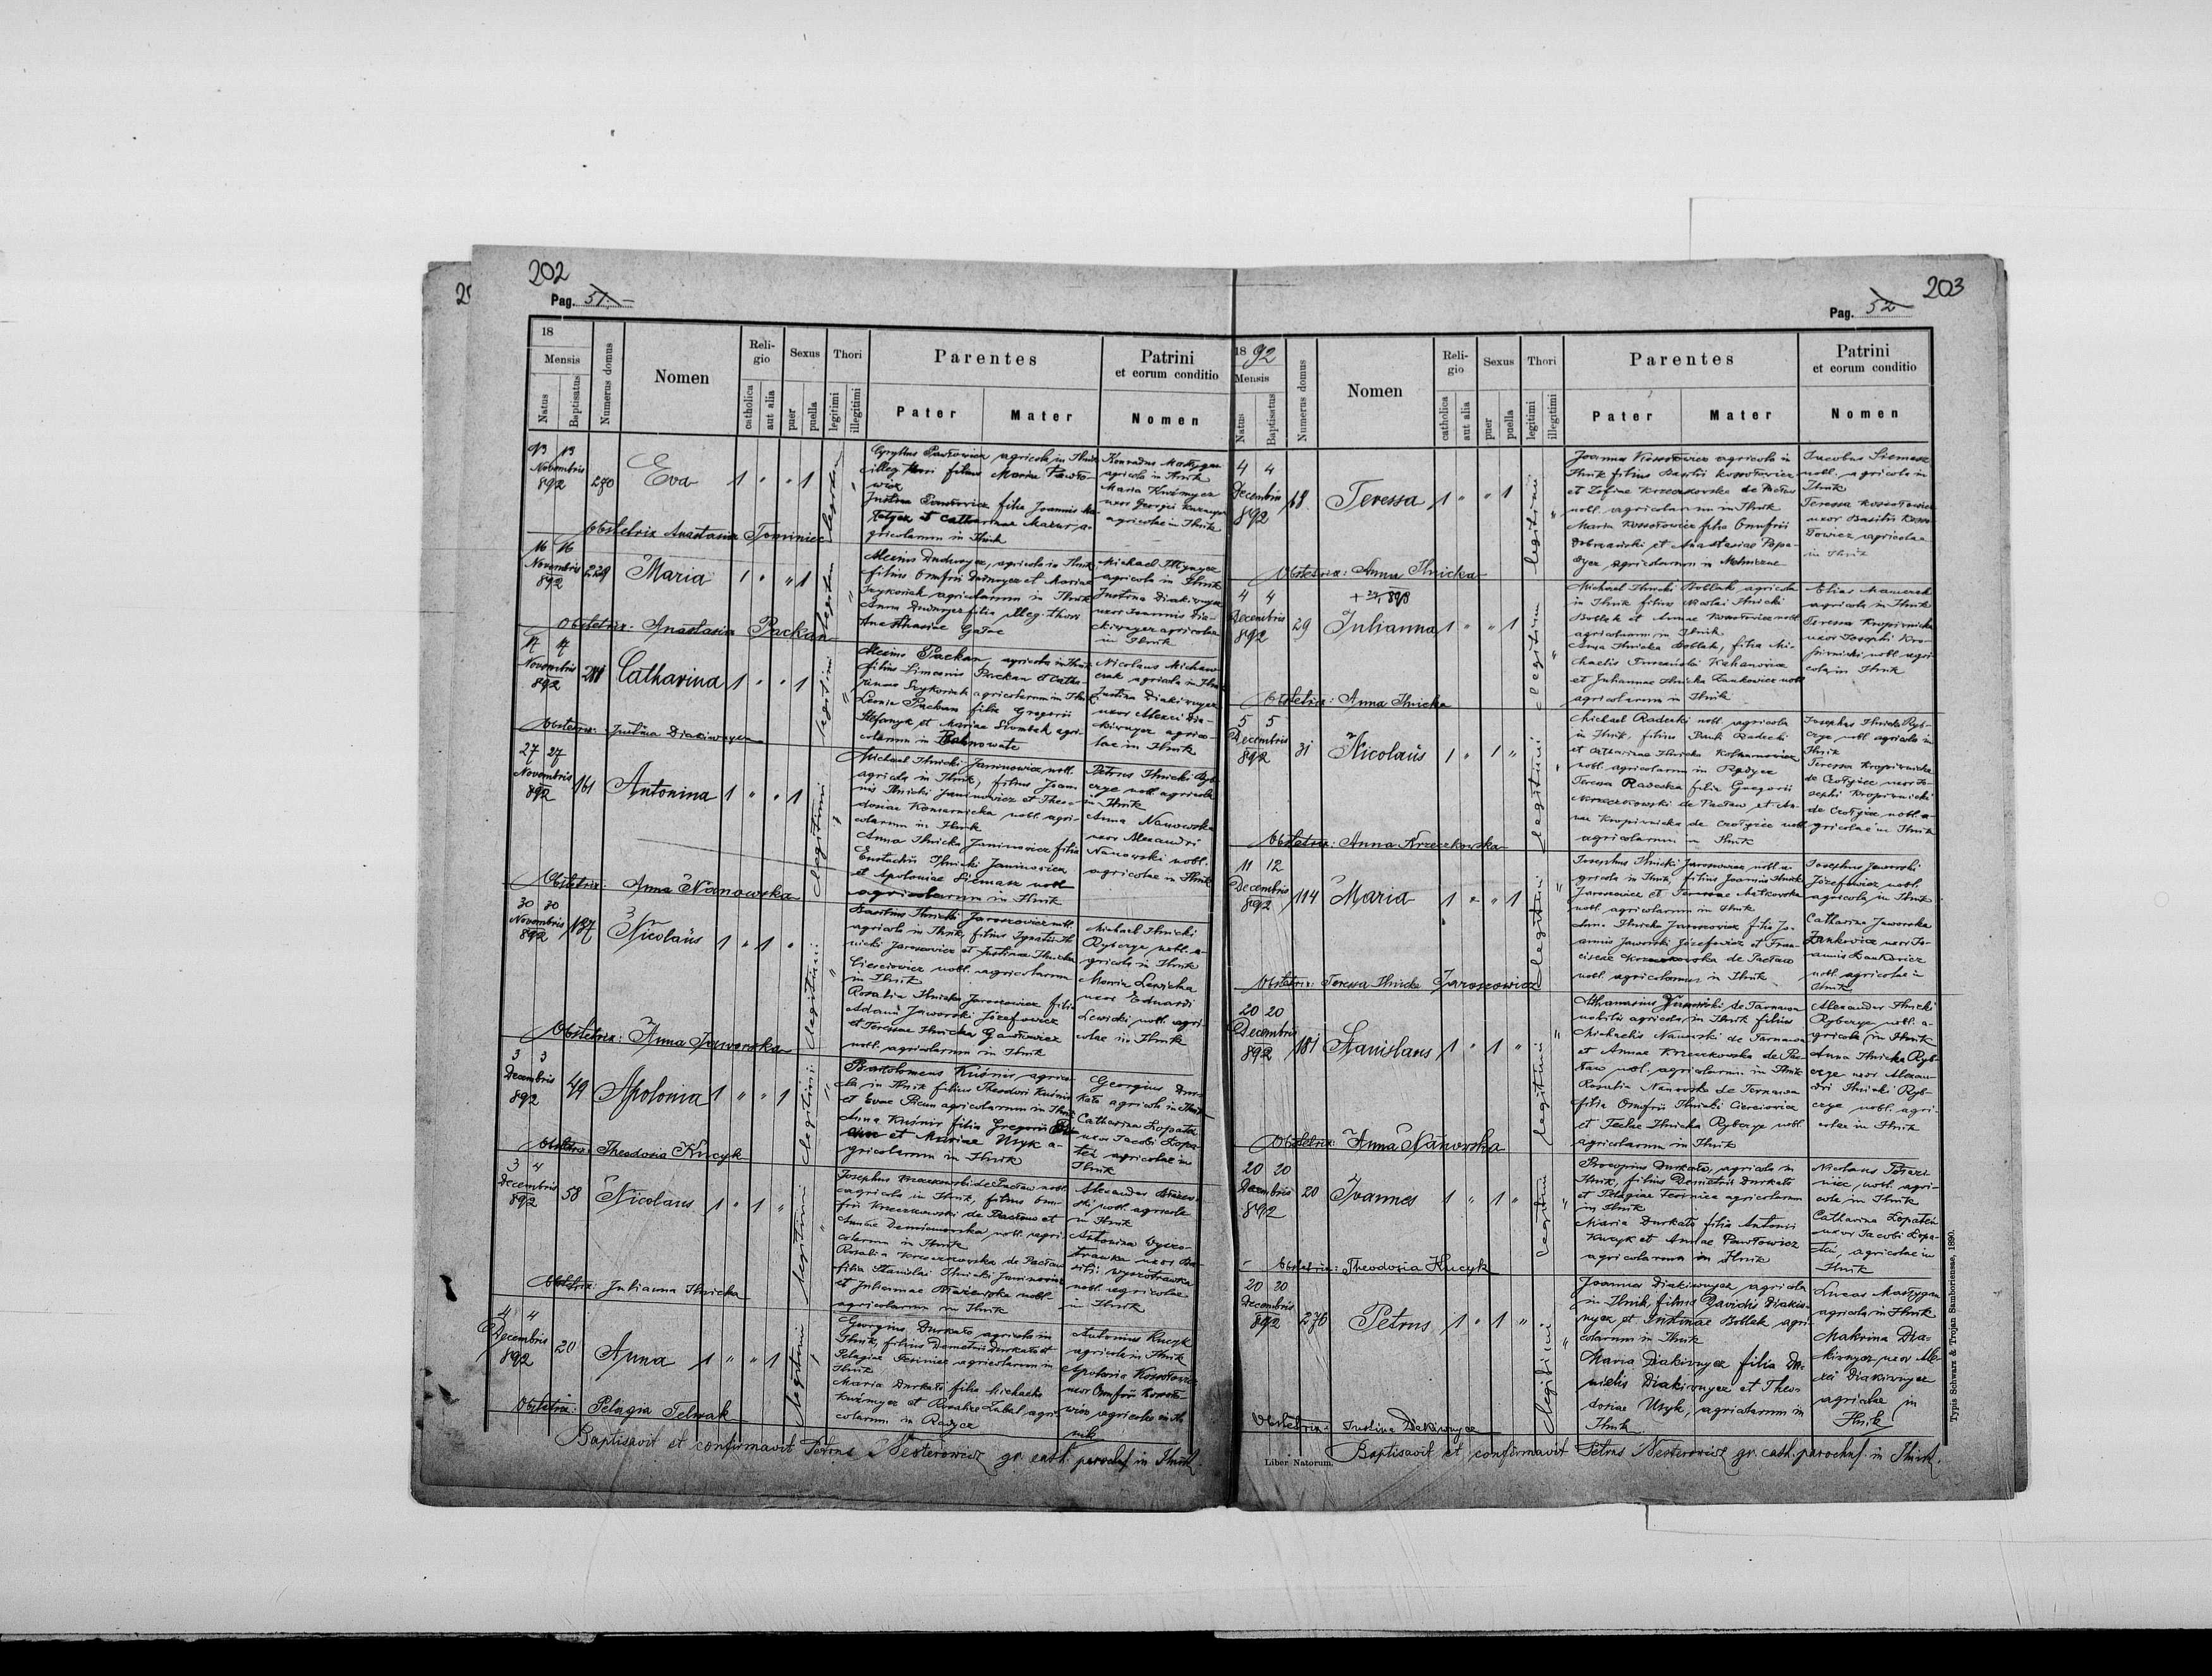 202
Pag. 51
18
Mensis
Natus
Baptisatus
Numerus domus
Nomen
Reli-
gio
catholica
aut alia
Sexus
puer
puella
Thori
legitimi
illegitimi
Parentes
Pater
Mater
Patrini
et eorum conditio
Nomen
13 13
Novembris
892
280
Eva
1 " " 1
legitimi
Cyryllus Pawłowicz agricola in Ilnik
illeg. thori filius Maria Pawło-
wicz
Justina Pawłowicz filia Joannis
et Catharinae Mazur, a-
gricolarum in Ilnik
agricola in Ilnik
Maria Kuźmycz
uxor Georgii Kuźmycz
agricolae in Ilnik
Obstetrix Anastasia Tominiec
16 16
Novembris
892
229
Maria
1 " " 1
legitimi
agricola in Ilnik
filius Onufrii et Mariae
Szykoriak agricolarum in Ilnik
Anna filia illeg. thori
Anasthasiae
Michael
agricola in Ilnik
Justina Diakiwnycz
uxor Joannis Dia-
kiwnycz agricolae
in Ilnik
Obstetrix: Anastasia Packan
17 17
Novembris
892
Catharina
1 " " 1
legitimi
Alexius Packan agricola in Ilnik
filius Simeonis Packan et Catha-
rinae Szykoriak agricolarum in Ilnik
Packan filia Gregorii
Stefanyk et Mariae agri-
colarum in
Nicolaus
agricola in Ilnik
Justina Diakiwnycz
uxor Alexei Dia-
kiwnycz agrico-
lae in Ilnik
Obstetrix: Justina Diakiwnycz
27 27
Novembris
892
161
Antonina
1 " " 1
legitimi
Michael Ilnicki Janinowicz nobl.
agricola in Ilnik, filius Joan-
nis Ilnicki Janinowicz et Theo-
dosiae Komarnicka nobl. agri-
colarum in Ilnik
Anna Ilnicka Janinowicz filia
Eustachii Ilnicki Janinowicz
et Apoloniae Siemasz nobl
agricolarum in Ilnik
Petrus Ilnicki Ryb-
czyc nobl. agricola
in Ilnik
Anna Nanowska
uxor Alexandri
Nanowski nobl.
agricolae in Ilnik
Obstetrix: Anna Nanowska
30 30
Novembris
892
187
Nicolaus
1 " 1 "
legitimi
Basilius Ilnicki Jaroszowicz nobl.
agricola in Ilnik, filius Ignatii Il-
nicki Jaroszowicz et Justinae Ilnicka
Cierciowicz nobl. agricolarum
in Ilnik
Rosalia Ilnicka Jaroszowicz filia
Adami Jaworski Józefowicz
et Teressae Ilnicka
nobl. agricolarum in Ilnik
Michael Ilnicki
Rybczyc, nobl. a-
gricola in Ilnik
Maria Lewicka
uxor Eduardi
Lewicki nobl. agri-
colae in Ilnik
Obstetrix: Anna Jaworska
3 3
Decembris
892
49
Apolonia
1 " " 1
legitimi
Bartolomeus Kuśnir agrico-
la in Ilnik filius Theodori Kuśnir
et Evae agricolarum in Ilnik
Anna Kuśnir filia Gregorii
et Mariae Usyk a-
gricolarum in Ilnik
Georgius Dur-
kało agricola in Ilnik
Catharina Łopatei
uxor Jacobi Łopa-
tei agricolae in
Ilnik
Obstetrix: Theodosia Kucyk
3 4
Decembris
892
58
Nicolaus
1 " 1 "
legitimi
Josephus Krzeczkowski de Pacław nobl
agricola in Ilnik, filius Onu-
frii Krzeczkowski de Pacław et
Annae nobl. agri-
colarum in Ilnik
Rosalia Krzeczkowska de Pacław
filia Stanislai Ilnicki Janinowicz
et Juliannae nobl.
agricolarum in Ilnik
Alexander
nobl. agricola
in Ilnik
Antonina Wyszo-
trawka uxor Ba-
silii Wyszotrawka
nobl. agricolae
in Ilnik
Obstetrix: Julianna Ilnicka
4 4
Decembris
892
20
Anna
1 " " 1
legitimi
Georgius Durkało agricola in
Ilnik, filius Demetrii Durkało et
Pelagiae agricolarum in
Ilnik
Maria Durkało filia Michaelis
Kuźmycz et Rosaliae agri-
colarum in Radycz
Antonius Kucyk
agricola in Ilnik
Apolonia
uxor Onufrii
agricolae in Il-
nik
Obstetrix: Pelagia Telwak
Baptisavit et confirmavit Petrus Nesterowicz gr. cath. parochus in Ilnik.
203
Pag. 52
18 92
Mensis
Natus
Baptisatus
Numerus domus
Nomen
Reli-
gio
catholica
aut alia
Sexus
puer
puella
Thori
legitimi
illegitimi
Parentes
Pater
Mater
Patrini
et eorum conditio
Nomen
4 4
Decembris
892
68
Teressa
1 " " 1
legitimi
Joannes Kossołowicz agricola in
Ilnik filius Basilii Kossołowicz
et Zofiae Krzeczkowska de Pacław
nobl. agricolarum in Ilnik
Maria Kossołowicz filia Onufrii
Dobrzański et Anastasiae
agricolarum in
Jacobus Siemasz
nobl. agricola in
Ilnik
Teressa Kossołowicz
uxor Basilii Kosso-
łowicz agricolae
in Ilnik
Obstetrix: Anna Ilnicka
4 4
Decembris
892
29
Julianna
1 " " 1
legitimi
Michael Ilnicki Boblak agricola
in Ilnik filius Nicolai Ilnicki
Boblak et Annae nobl
agricolarum in Ilnik
Anna Ilnicka Boblak, filia Mi-
chaelis
et Juliannae Ilnicka Zankowicz nobl
agricolarum in Ilnik
Elias
agricola in Ilnik
Teressa Kropiwnicka
uxor Josephi Kro-
piwnicki nobl agri-
colae in Ilnik
Obstetrix: Anna Ilnicka
5 5
Decembris
892
31
Nicolaus
1 " 1 "
legitimi
Michael Radecki nobl. agricola
in Ilnik, filius Pauli Radecki
et Catharinae Ilnicka
nobl. agricolarum in Radycz
Teressa Radecka filia Gregorii
Krzeczkowski de Pacław et An-
nae Kropiwnicka de Czołyce nobl.
agricolarum in Ilnik
Josephus Ilnicki Ryb-
czyc nobl agricola in
Ilnik
Teressa Kropiwnicka
de Czołyce, uxor Jo-
sephi Kropiwnicki
de Czołyce nobl. a-
gricolae in Ilnik
Obstetrix: Anna Krzeczkowska
11 12
Decembris
892
114
Maria
1 " " 1
legitimi
Josephus Ilnicki Jaroszowicz nobl. a-
gricola in Ilnik, filius Joannis Ilnicki
Jaroszowicz et
nobl. agricolarum in Ilnik
Anna Ilnicka Jaroszowicz filia Jo-
annis Jaworski Józefowicz et Fran-
ciscae Krzeczkowska de Pacław
nobl. agricolarum in Ilnik
Josephus Jaworski
Józefowicz nobl.
agricola in Ilnik
Catharina Jaworska
Zankowicz uxor Jo-
annis Zankowicz
nobl. agricolae in
Ilnik
Obstetrix: Teressa Ilnicka Jaroszowicz
20 20
Decembris
892
181
Stanislaus
1 " 1 "
legitimi
Athanasius Nanowski de Tarnawa
nobilis agricola in Ilnik filius
Michaelis Nanowski de Tarnawa
et Annae Krzeczkowska de Pac-
ław nobl. agricolarum in Ilnik
Rosalia Nanowska de Tarnawa
filia Onufrii Ilnicki Cierciowicz
et Teclae Ilnicka Rybczyc nobl
agricolarum in Ilnik
Alexander Ilnicki
Rybczyc nobl. a-
gricola in Ilnik
Anna Ilnicka Ryb-
czyc uxor Alexan-
dri Ilnicki Ryb-
czyc nobl. agri-
colae in Ilnik
Obstetrix: Anna Nanowska
20 20
Decembris
892
20
Joannes
1 " 1 "
legitimi
Procopius Durkało, agricola in
Ilnik, filius Demetrii Durkało
et Pelagiae agricolarum
in Ilnik
Maria Durkało filia Antonii
Kucyk et Annae Pawłowicz
agricolarum in Ilnik
Nicolaus
nobl. agri-
cola in Ilnik
Catharina Łopatei
uxor Jacobi Łopa-
tei, agricolae in
Ilnik
Obstetrix: Theodosia Kucyk
20 20
Decembris
892
276
Petrus
1 " 1 "
legitimi
Joannes Diakiwnycz agricola
in Ilnik, filius Davidis Diakiw-
nycz et Justinae Boblak agri-
colarum in Ilnik
Maria Diakiwnycz filia Da-
nielis Diakiwnycz et Theo-
dosiae Usyk, agricolarum in
Ilnik
Lucas
agricola in Ilnik
Makrina Dia-
kiwnycz uxor Ale-
xii Diakiwnycz
agricolae in
Ilnik
Obstetrix: Justina Diakiwnycz
Baptisavit et confirmavit Petrus Nesterowicz gr. cath. parochus in Ilnik.
Liber Natorum.
Typis Schwarz & Trojan Samboriensae, 1890.